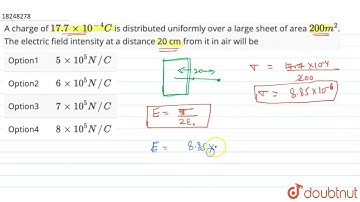 18248278
A charge of 17.7 × 10⁻⁴C is distributed uniformly over a large sheet of area 200m².
The electric field intensity at a distance 20 cm from it in air will be
Option1 5 × 10⁵N/C
Option2 6 × 10⁵N/C
Option3 7 × 10⁵N/C
Option4 8 × 10⁵N/C
20cm
σ = 17.7×10⁻⁴
200
σ = 8.85×10⁻⁶
E = σ
2ε₀
E = 8.85×
doubtnut